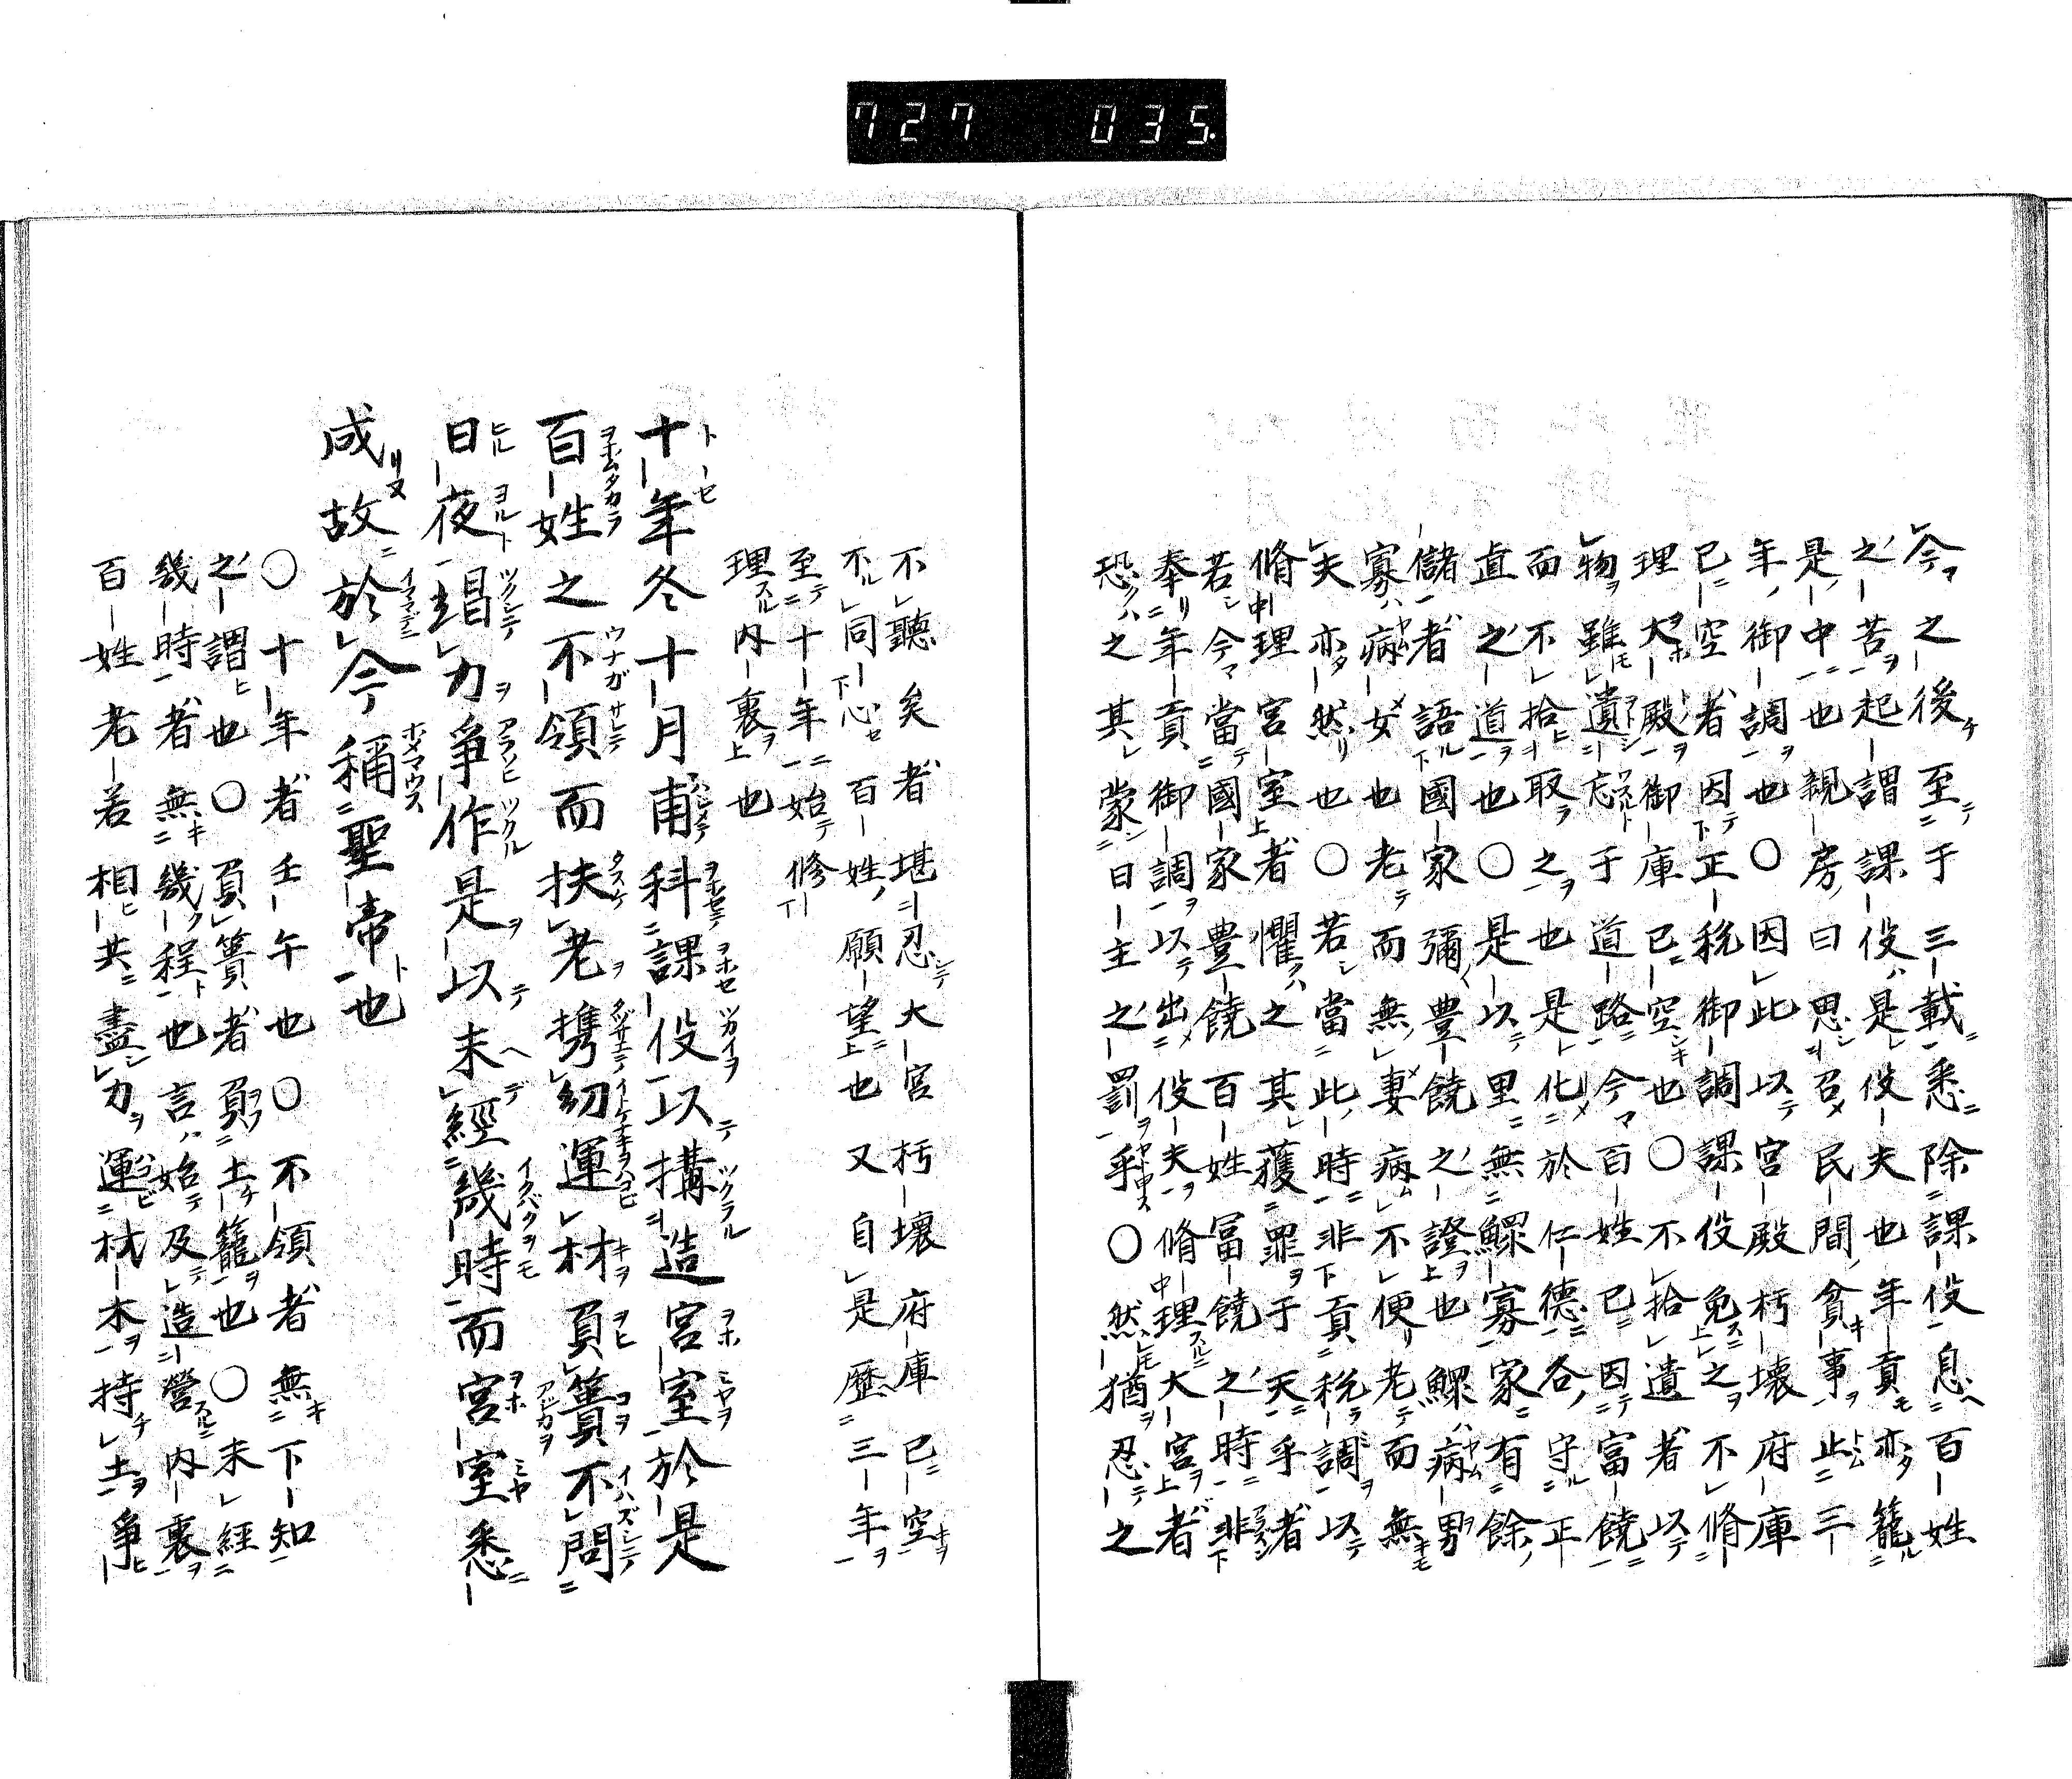 727 035.
今之後至于三載悉除課役息百姓
之苦起謂課役是役夫也年貢亦籠
是中也親房曰思召民間貧事止三
年御調也〇因此以宮殿朽壊府庫
已空者因正税御調課役免之不脩
理大殿御庫已空也〇不拾遺者以
物雖遺忘于道路今百姓已因富饒
而不拾取之也是化於仁徳各守正
直之道也〇是以里無鰥寡家有餘
儲者語國家彌豊饒之證也鰥病男
寡病女也老而無妻病不便老而無
夫亦然也〇若當此時非貢税調以
脩理宮室者懼之其獲罪于天乎者
若今當國家豊饒百姓冨饒之時非
奉年貢御調以出役夫脩理大宮者
恐之其蒙日主之罰乎〇然猶忍之
不聽矣者堪忍大宮朽壊府庫已空
不同心百姓願望也又自是歴三年
至十年始修
理内裏也
十年冬十月甫科課役以搆造宮室於是
百姓之不領而扶老携幼運材負簣不問
日夜竭力爭作是以未經幾時而宮室悉
成故於今稱聖帝也
〇十年者壬午也〇不領者無下知
之謂也〇負簣者負土籠也〇未經
幾時者無幾程也言始及造營内裏
百姓老若相共盡力運材木持土爭